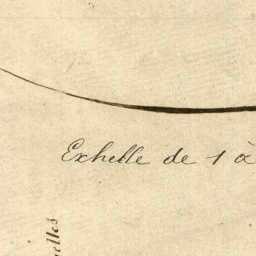 Exhelle de 1 à
elles